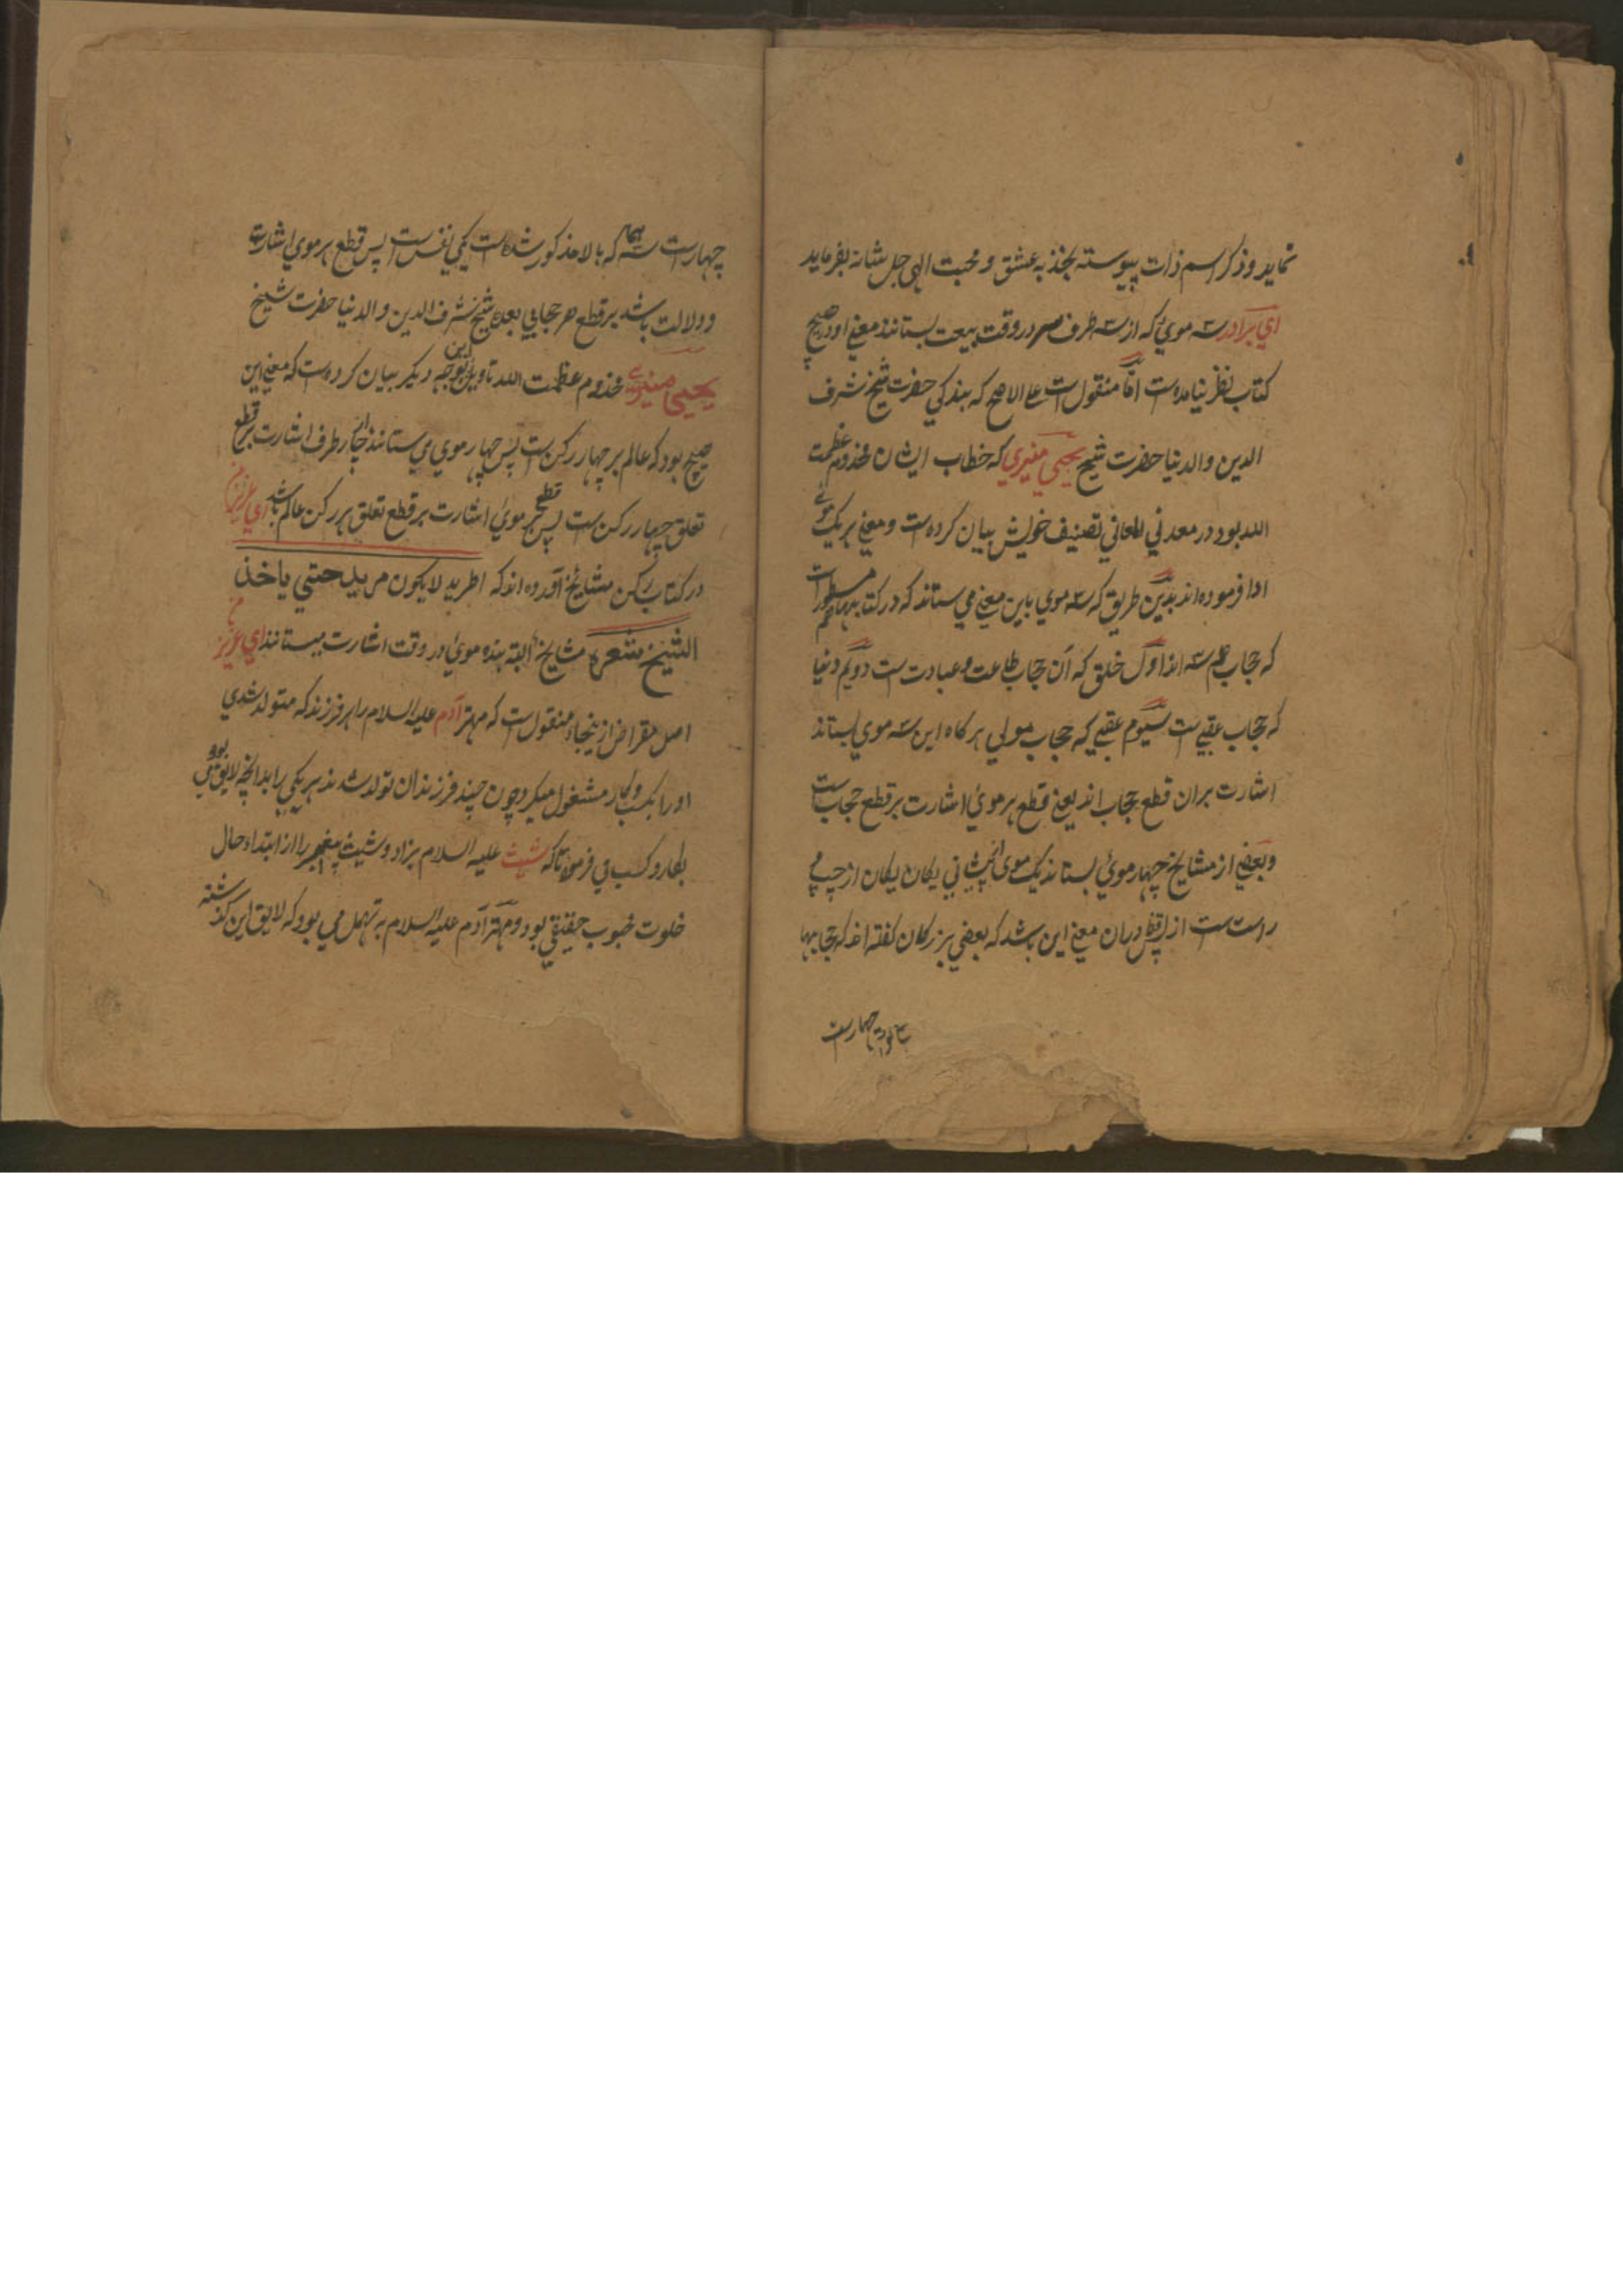 نماید و ذکر اسم ذات پیوسته بجذبه عشق و محبت الهی جل شانه بفرماید
ای برادر سه موئی که از سه طرف سر در وقت بیعت بستانند معنی او در هیچ
کتاب بنظر نیامده است اما منقول است علی الاصح که بندکی حضرت شیخ شرف
الدین والدنیا حضرت شیخ یحیی منیری که خطاب ایشان مخدوم عظمت
الله بود در معدن المعانی تصنیف خویش بیان کرده است و معنی هر یک موئی
ادا فرموده اند بدین طریق که سه موی باین معنی می ستانند که در کتابها مسطور است
که حجاب هم سه اند اول خلق که آن حجاب طاعت و عبادت ست دویم دنیا
که حجاب عقبی ست سیوم عقبی که حجاب مولی هر کاه این سه موی بستاند
اشارت بران قطع حجاب اند یعنی قطع هر موئی اشارت بر قطع حجاب ست
و بعضی از مشایخ چهار موئی بستانند یک موی از پیشانی یکان یکان از چپ و
راست ست از قفا دران معنی این باشد که بعضی بزرکان کفته اند که حجابها
چهارست
چهارست سه همان که بالا مذکور شده است یکی نفس ست پس قطع هر موی اشارت
و دلالت باشد بر قطع هر حجابی بعده شیخ شرف الدین والدنیا حضرت شیخ
یحیی منیری مخدوم عظمت الله تاویل این بوجه دیکر بیان کرده ست که معنی این
هیچ بود که عالم بر چهار رکن ست پس چهار موی می ستانند از چار طرف اشارت بر قطع
تعلق چهار رکن ست پس قطع هر موئی اشارت بر قطع تعلق هر رکن عالم باشد ای عزیز من
در کتاب رکن مشایخ آورده اند که المرید لا یکون مرید حتی یاخذ
الشیخ شعره مشایخ البته بنده موئی در وقت اشارت میستانند ای عزیز من
اصل مقراض از ینجا منقول است که مهتر آدم علیه السلام را هر فرزند که متولد شدی
او را بکسب و کار مشغول میکرد چون چند فرزندان تولد شدند هر یکی را بدانچه لایق بودی
بکار و کسب می فرمود تا که شیث علیه السلام بزاد و شیث پیغمبر را از ابتداء حال
خلوت محبوب حقیقی بود و مهتر آدم علیه السلام به تهمل می بود که لایق این کذشته